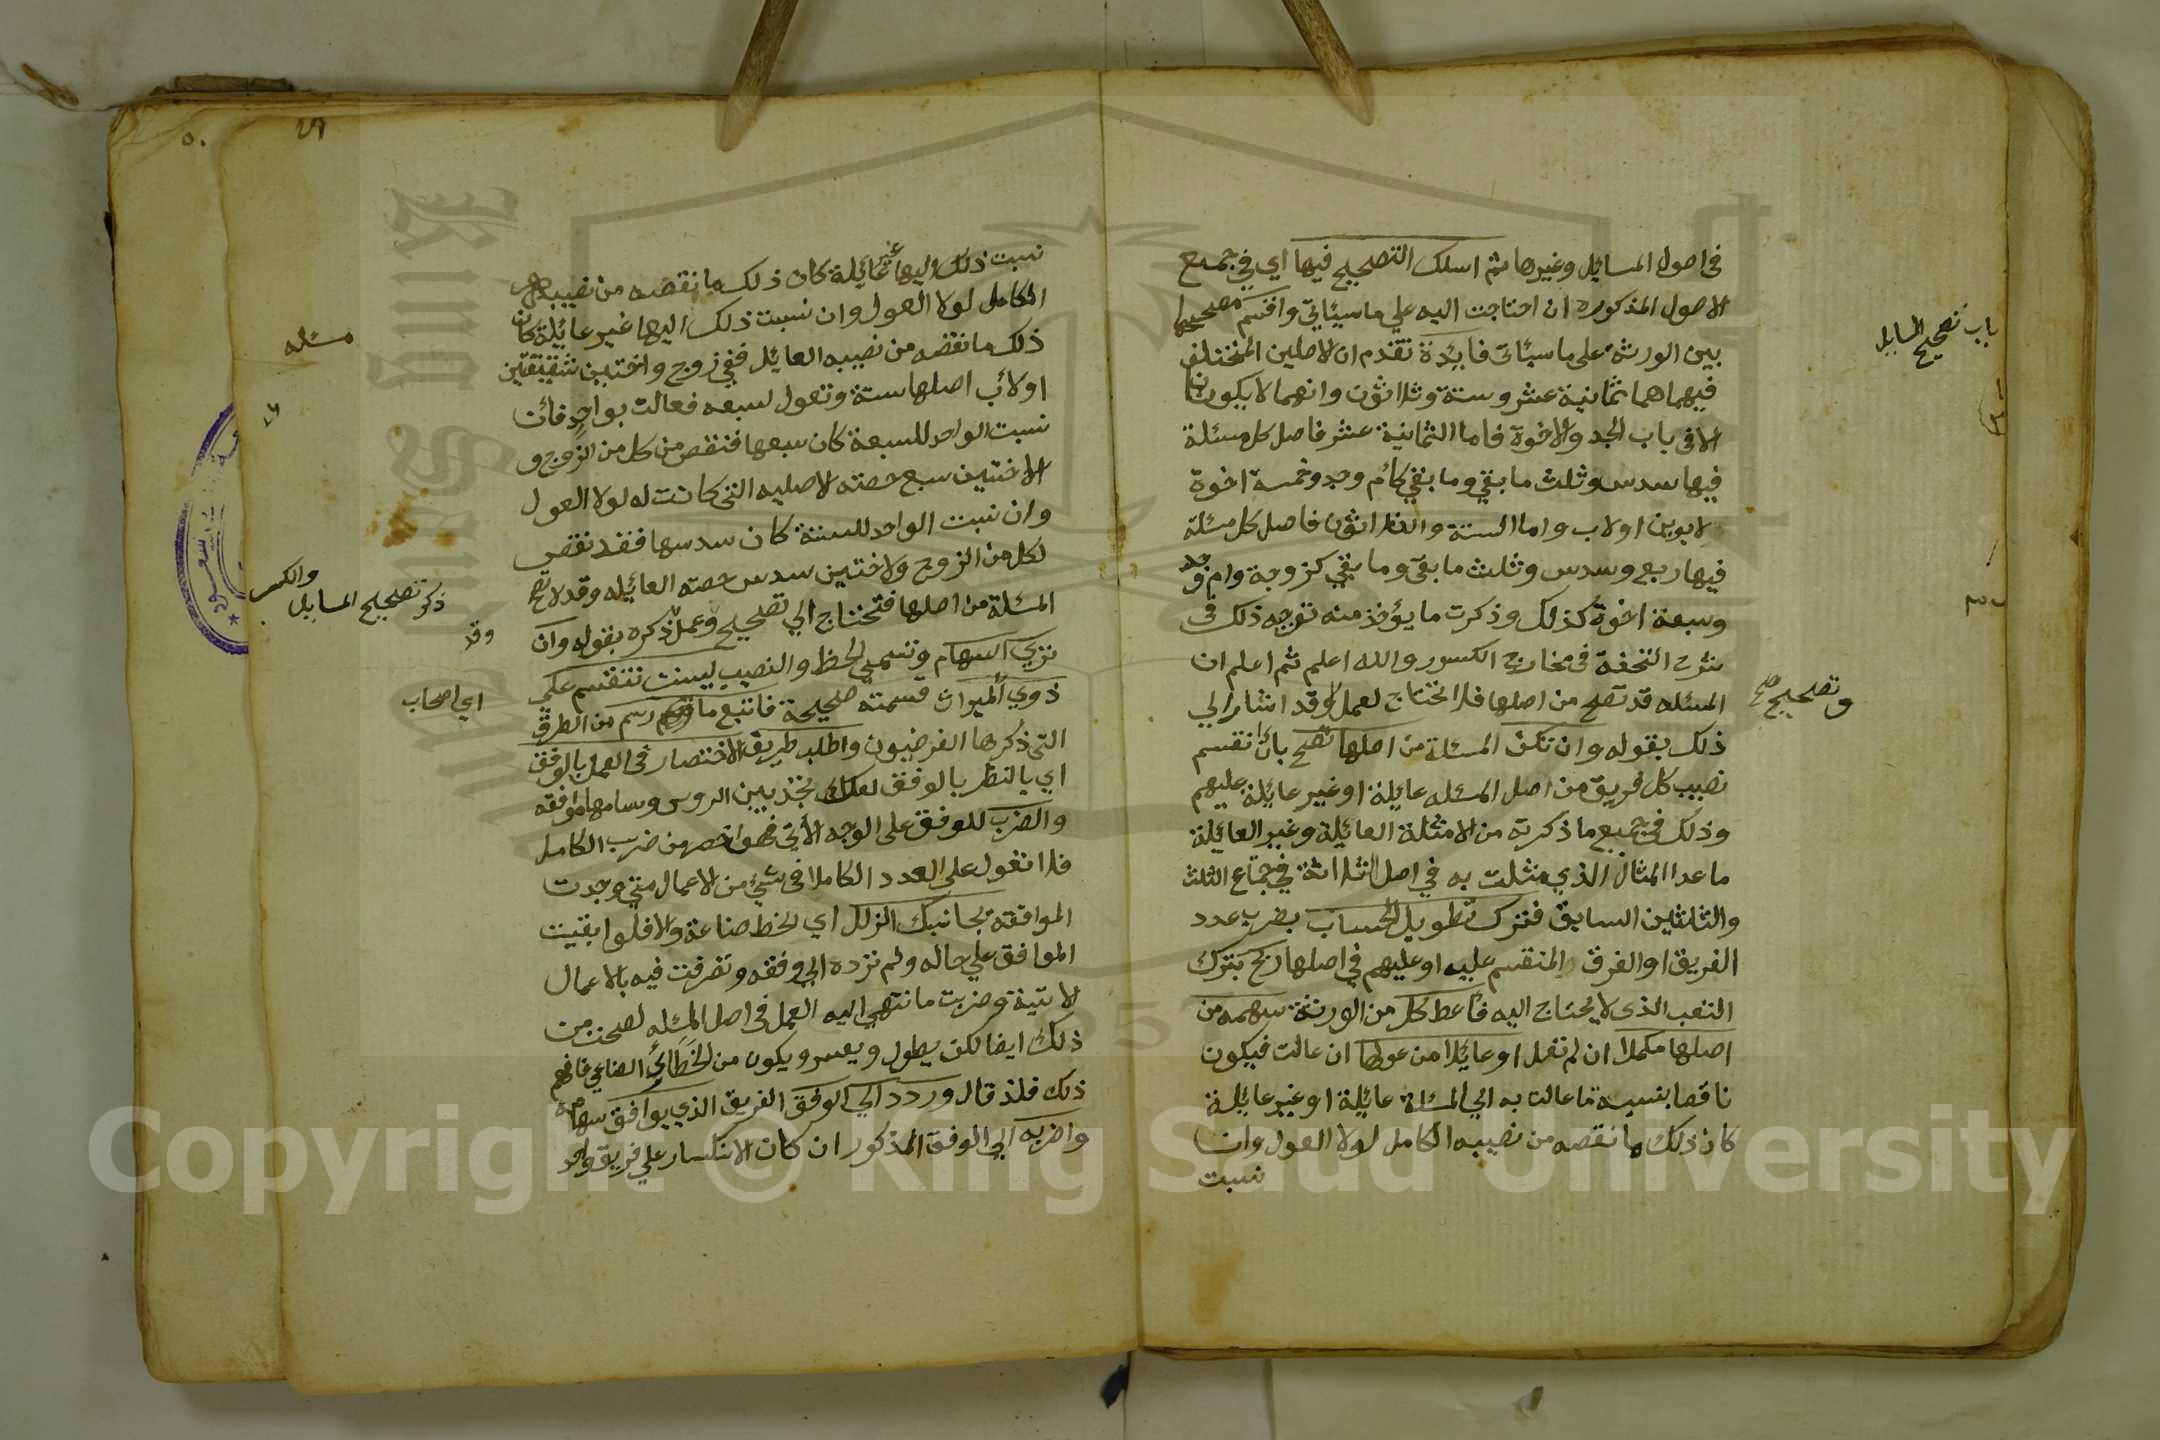 في اصول المسايل وغيرها ثم اسلك التصحيح فيها اي في جميع
الاصول المذكوره ان احتاجت اليه علي ما سيئاتي واقسم مصححها
بين الورثة على ما سيئات فايدة تقدم ان الاصلين المختلف
فيهما هما ثمانية عشر وستة وثلاثون وانهما لا يكونان
الا في باب الجد والاخوة فاما الثمانية عشر فاصل كل مسئلة
فيها سدس وثلث ما بقي وما بقي كام وجد وخمسة اخوة
لابوين او لاب واما الستة والثلاثون فاصل كل مسئلة
فيها ربع وسدس وثلث ما بقي وما بقي كزوجة وام وجد
وسبعة اخوة كذلك وذكرت ما يؤخذ منه توجيه ذلك في
شرح التحفة في مخارج الكسور والله اعلم ثم اعلم ان
المسئله قد تصح من اصلها فلا تحتاج لعمل وقد اشار الي
ذلك بقوله وان تكن المسئلة من اصلها تصح بان تقسم
نصيب كل فريق من اصل المسئله عايلة او غير عايلة عليهم
وذلك في جميع ما ذكرته من الامثلة العائلة وغير العائلة
ما عدا المثال الذي مثلت به في اصل الثلاثة في جتماع الثلث
والثلثين السابق فترك تطويل الحساب بضرب عدد
الفريق او الفرق المنقسم عليه او عليهم في اصلها ربح بترك
التعب الذي لا يحتاج اليه فأعط كل من الورثة سهمه من
اصلها مكملا ان لم تعل او عايلا من عولها ان عالت فيكون
ناقصا بنسبة ما عالت به الي المسئلة عايلة او غير عايلة
كان ذلك ما نقصه من نصيبه الكامل لولا العول وان
نسبت
باب تصحيح المسايل
وتصحيح صح
نسبت ذلك اليها غير عائلة كان ذلك ما نقصه من نصيبه
الكامل لولا العول وان نسبت ذلك اليها غير عايلة كان
ذلك ما نقصه من نصيبه العايل ففي زوج واختين شقيقتين
او لاب اصلها ستة وتعول لسبعه فعالت بواحد فان
نسبت الواحد للسبعة كان سبعها فنقص من كل من الزوج و
الاختين سبع حصته الاصليه التي كانت له لولا العول
وان نسبت الواحد للستة كان سدسها فقد نقص
لكل من الزوج والاختين سدس حصته العايله وقد لا تصح
المسئلة من اصلها فتحتاج الي تصحيح وعمل ذكره بقوله وان
تري السهام وتسمي الحظ والنصيب ليست تنقسم على
ذوي الميراث قسمته صحيحة فاتبع ما رسم من الطرق
التي ذكرها الفرضيون واطلب طريق الاختصار في العمل بالوفق
اي بالنظر بالوفق لعلك تجد بين الروس وسهامها موافقه
والضرب للوفق على الوجه الاتي فهو اخصر من ضرب الكامل
فلا تعول علي العدد الكامل في شيء من الاعمال متي وجدت
الموافقة بجانبك الزلل اي الخطا صناعة والا فلو ابقيت
الموافق علي حاله ولم ترده الي وفقه وتصرفت فيه بالاعمال
الاتية وضربت ما انتهي اليه العمل في اصل المسئله لصحت من
ذلك ايضا لكن يطول ويعسر ويكون من الخطاء الصناعي فافهم
ذلك فلذ قال وردد الي الوفق الفريق الذي يوافق سهامه
واضربه الي الوفق المذكور ان كان الانكسار علي فريق واحد
مسئله
ذكر تصحيح المسايل والكسر
وقد
اي اصحاب
٥٠
Copyright © King Saud University
King Saud University